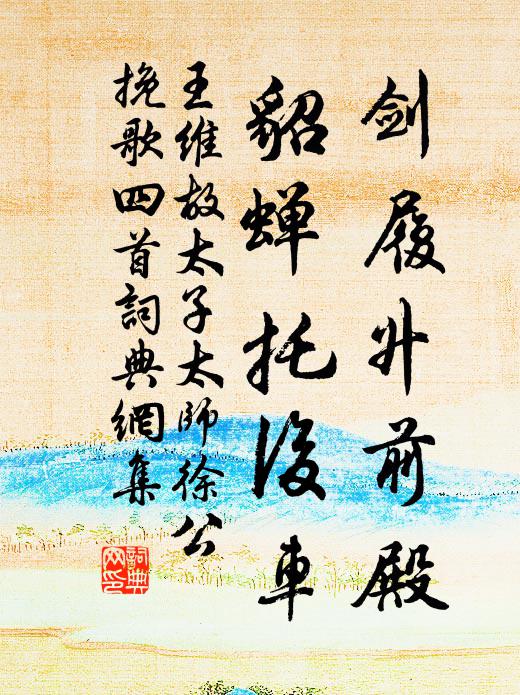 剑履升前殿
貂蝉托後车
王维故太子太师徐公
挽歌四首词典網集
詞典網印